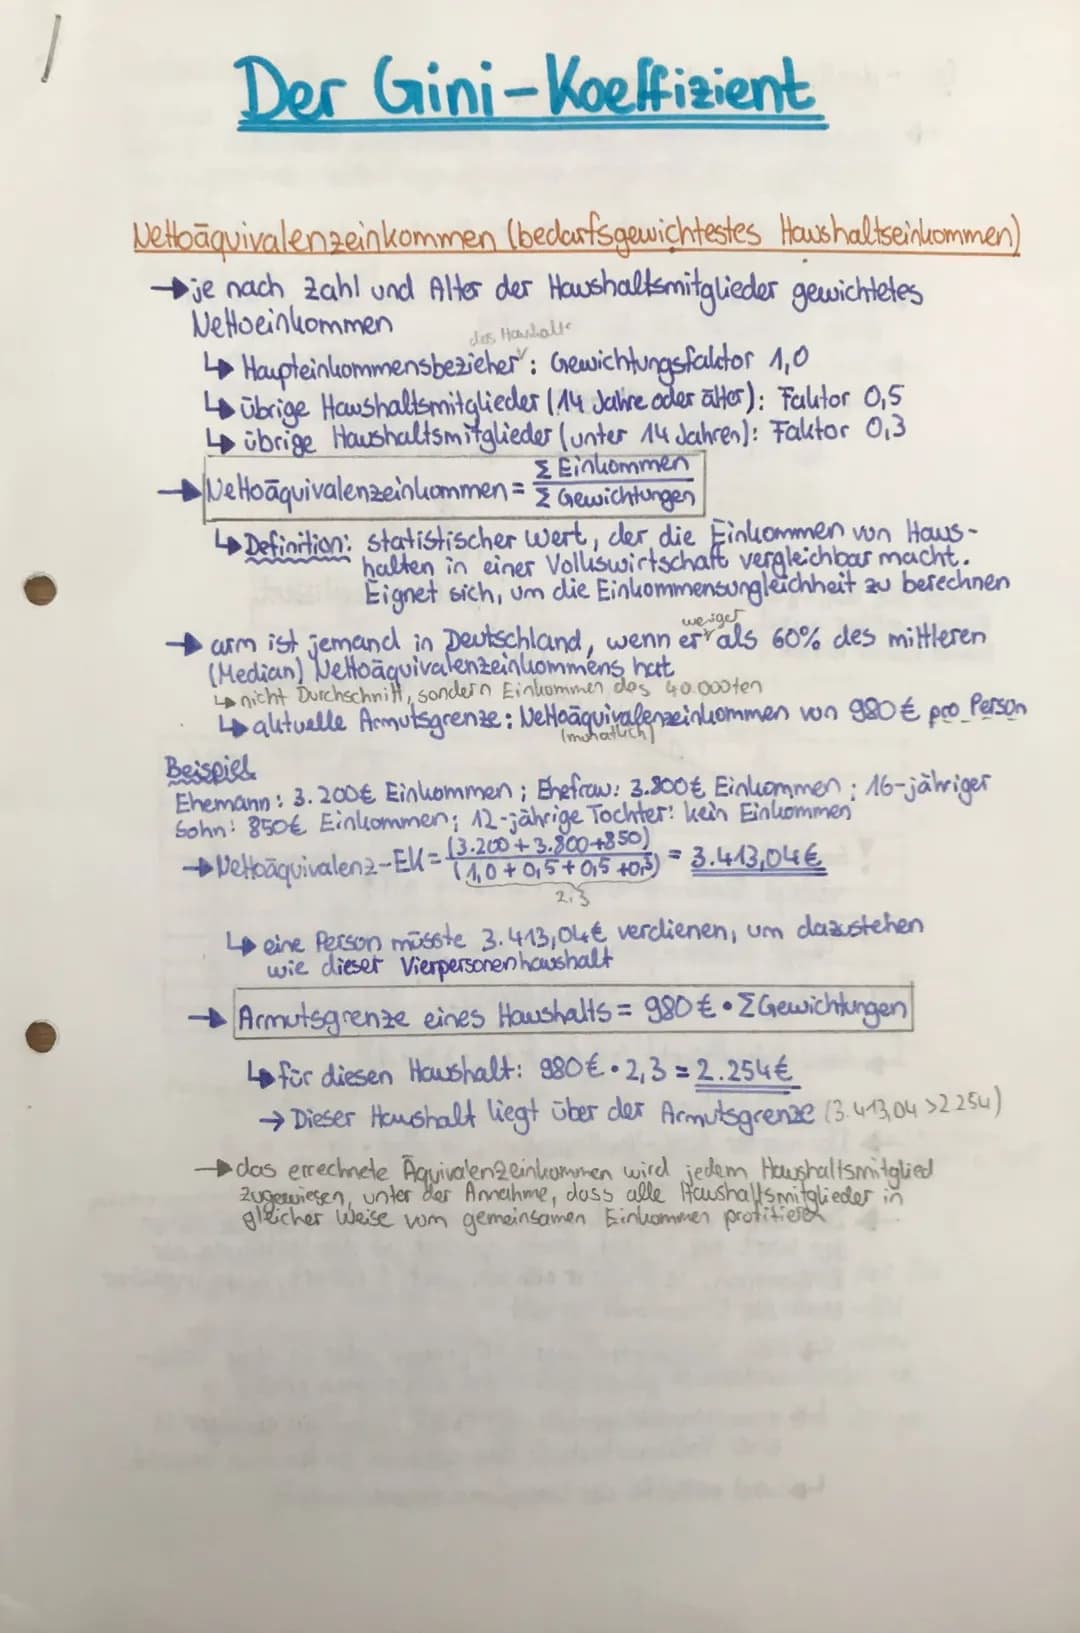 Der Gini-Koeffizient
Nettoäquivalenzeinkommen (bedarfsgewichtestes Haushaltseinkommen)
→ je nach Zahl und Alter der Haushaltsmitglieder gewichtetes
Nettoeinkommen
des Haushalts
↳ Haupteinkommensbezieher: Gewichtungsfaktor 1,0
↳ übrige Haushaltsmitglieder (14 Jahre oder älter): Faktor 0,5
↳ übrige Haushaltsmitglieder (unter 14 Jahren): Faktor 0,3
→ Nettoäquivalenzeinkommen = Σ Einkommen / Σ Gewichtungen
↳ Definition: statistischer Wert, der die Einkommen von Haus-
halten in einer Volkswirtschaft vergleichbar macht.
Eignet sich, um die Einkommensungleichheit zu berechnen
weniger
→ arm ist jemand in Deutschland, wenn er als 60% des mittleren
(Median) Nettoäquivalenzeinkommens hat
↳ nicht Durchschnitt, sondern Einkommen des 40.000ten
↳ aktuelle Armutsgrenze: Nettoäquivalenzeinkommen von 980€ pro Person
(monatlich)
Beispiel
Ehemann: 3.200€ Einkommen; Ehefrau: 3.800€ Einkommen; 16-jähriger
Sohn: 850€ Einkommen; 12-jährige Tochter: kein Einkommen
→ Nettoäquivalenz-EK = (3.200 + 3.800 + 850) / (1,0 + 0,5 + 0,5 + 0,3) = 3.413,04€
2,3
↳ eine Person müsste 3.413,04€ verdienen, um dazustehen
wie dieser Vierpersonenhaushalt
→ Armutsgrenze eines Haushalts = 980€ • Σ Gewichtungen
↳ für diesen Haushalt: 980€ • 2,3 = 2.254€
→ Dieser Haushalt liegt über der Armutsgrenze (3.413,04 > 2.254)
→ das errechnete Äquivalenzeinkommen wird jedem Haushaltsmitglied
zugewiesen, unter der Annahme, dass alle Haushaltsmitglieder in
gleicher Weise vom gemeinsamen Einkommen profitieren